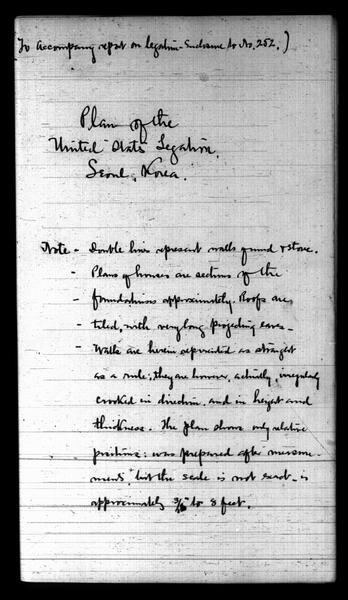 (To accompany report on legation - Enclosure to No. 252.)
Plan of the
United States Legation,
Seoul, Korea.
Note - Double lines represent walls of mud & stone.
- Plans of houses are sections of the
- foundations approximately. Roofs are
- tiled, with very long projecting eaves -
- Walls are herein represented as straight
as a rule; they are however, actually, irregularly
crooked in direction and in height and
thickness. The plan shows only relative
positions: was prepared after measure-
ments, but the scale is not exact - is
approximately to 8 feet.